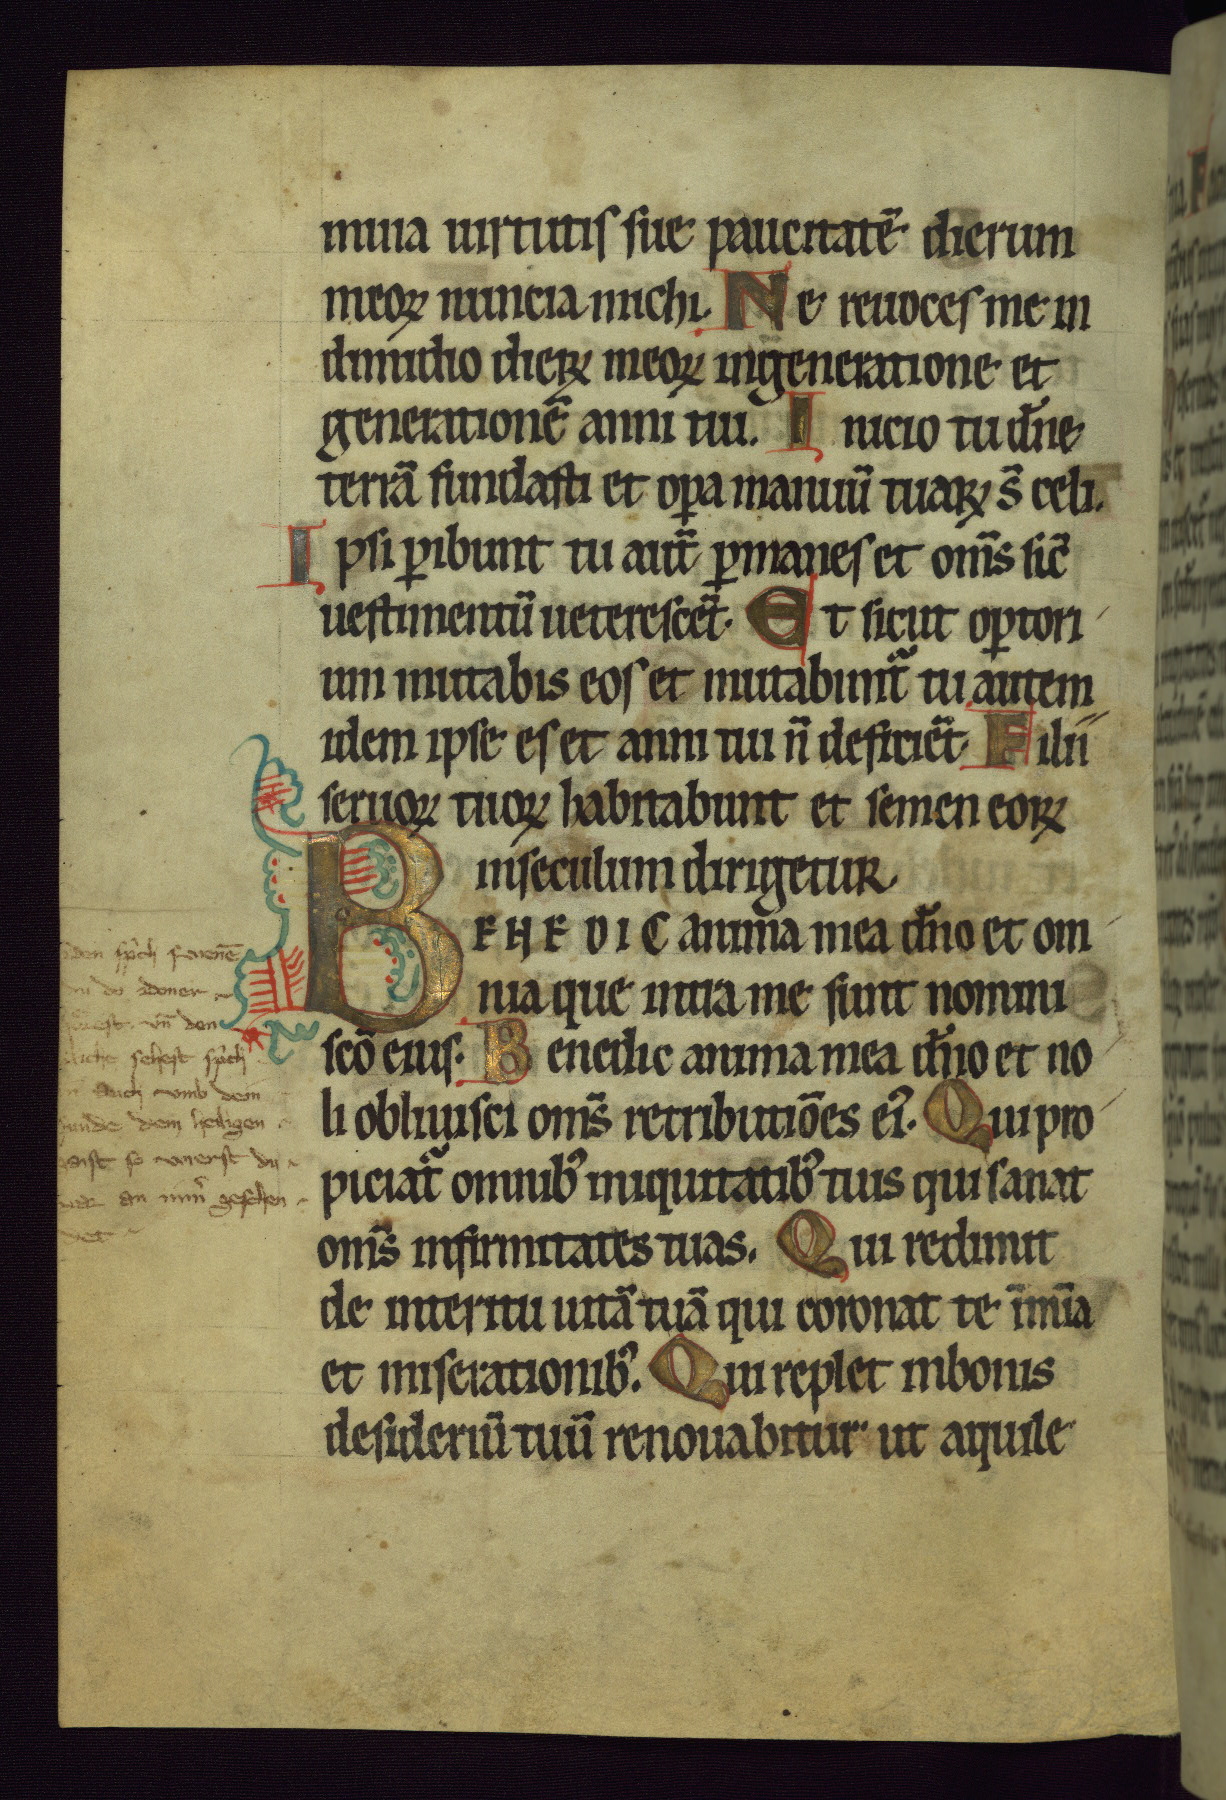 in uia uirtutis sue paucitatē dierum
meoꝝ nuncia michi. Ne reuoces me in
dimidio dieꝝ meoꝝ in generatione et
generationē anni tui. Inicio tu dn̄e
terrā fundasti et oꝑa manuū tuaꝝ s̄ celi.
Ipsi ꝑibunt tu aut̄ ꝑmanes et om̄s sic̄
uestimentū ueterescēt. Et sicut oꝑtori
um mutabis eos et mutabunt᷑ tu autem
idem ipse es et anni tui n̄ deficiēt. Filii
seruoꝝ tuoꝝ habitabunt et semen eoꝝ
in seculum dirigetur.
BENEDIC anima mea dn̄o et om
nia que intra me sunt nomini
scō eius. Benedic anima mea dn̄o et no
li obliuisci om̄s retributiōes ei᷒. Qui pro
piciat᷑ omnib᷒ iniquitatib᷒ tuis qui sanat
om̄s infirmitates tuas. Qui redimit
de interitu uitā tuā qui coronat te ī mīa
et miserationib᷒. Qui replet in bonis
desideriū tuū renouabitur ut aquile
den sp̄ch
du do doner
vn̄ den
sehest sp̄ch
auch vmb dem
dem heiligen
so wierst du
an nim̄ geschen